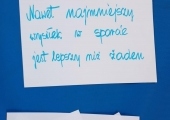 Nawet najmniejszy
wysiłek w sporcie
jest lepszy niż żaden